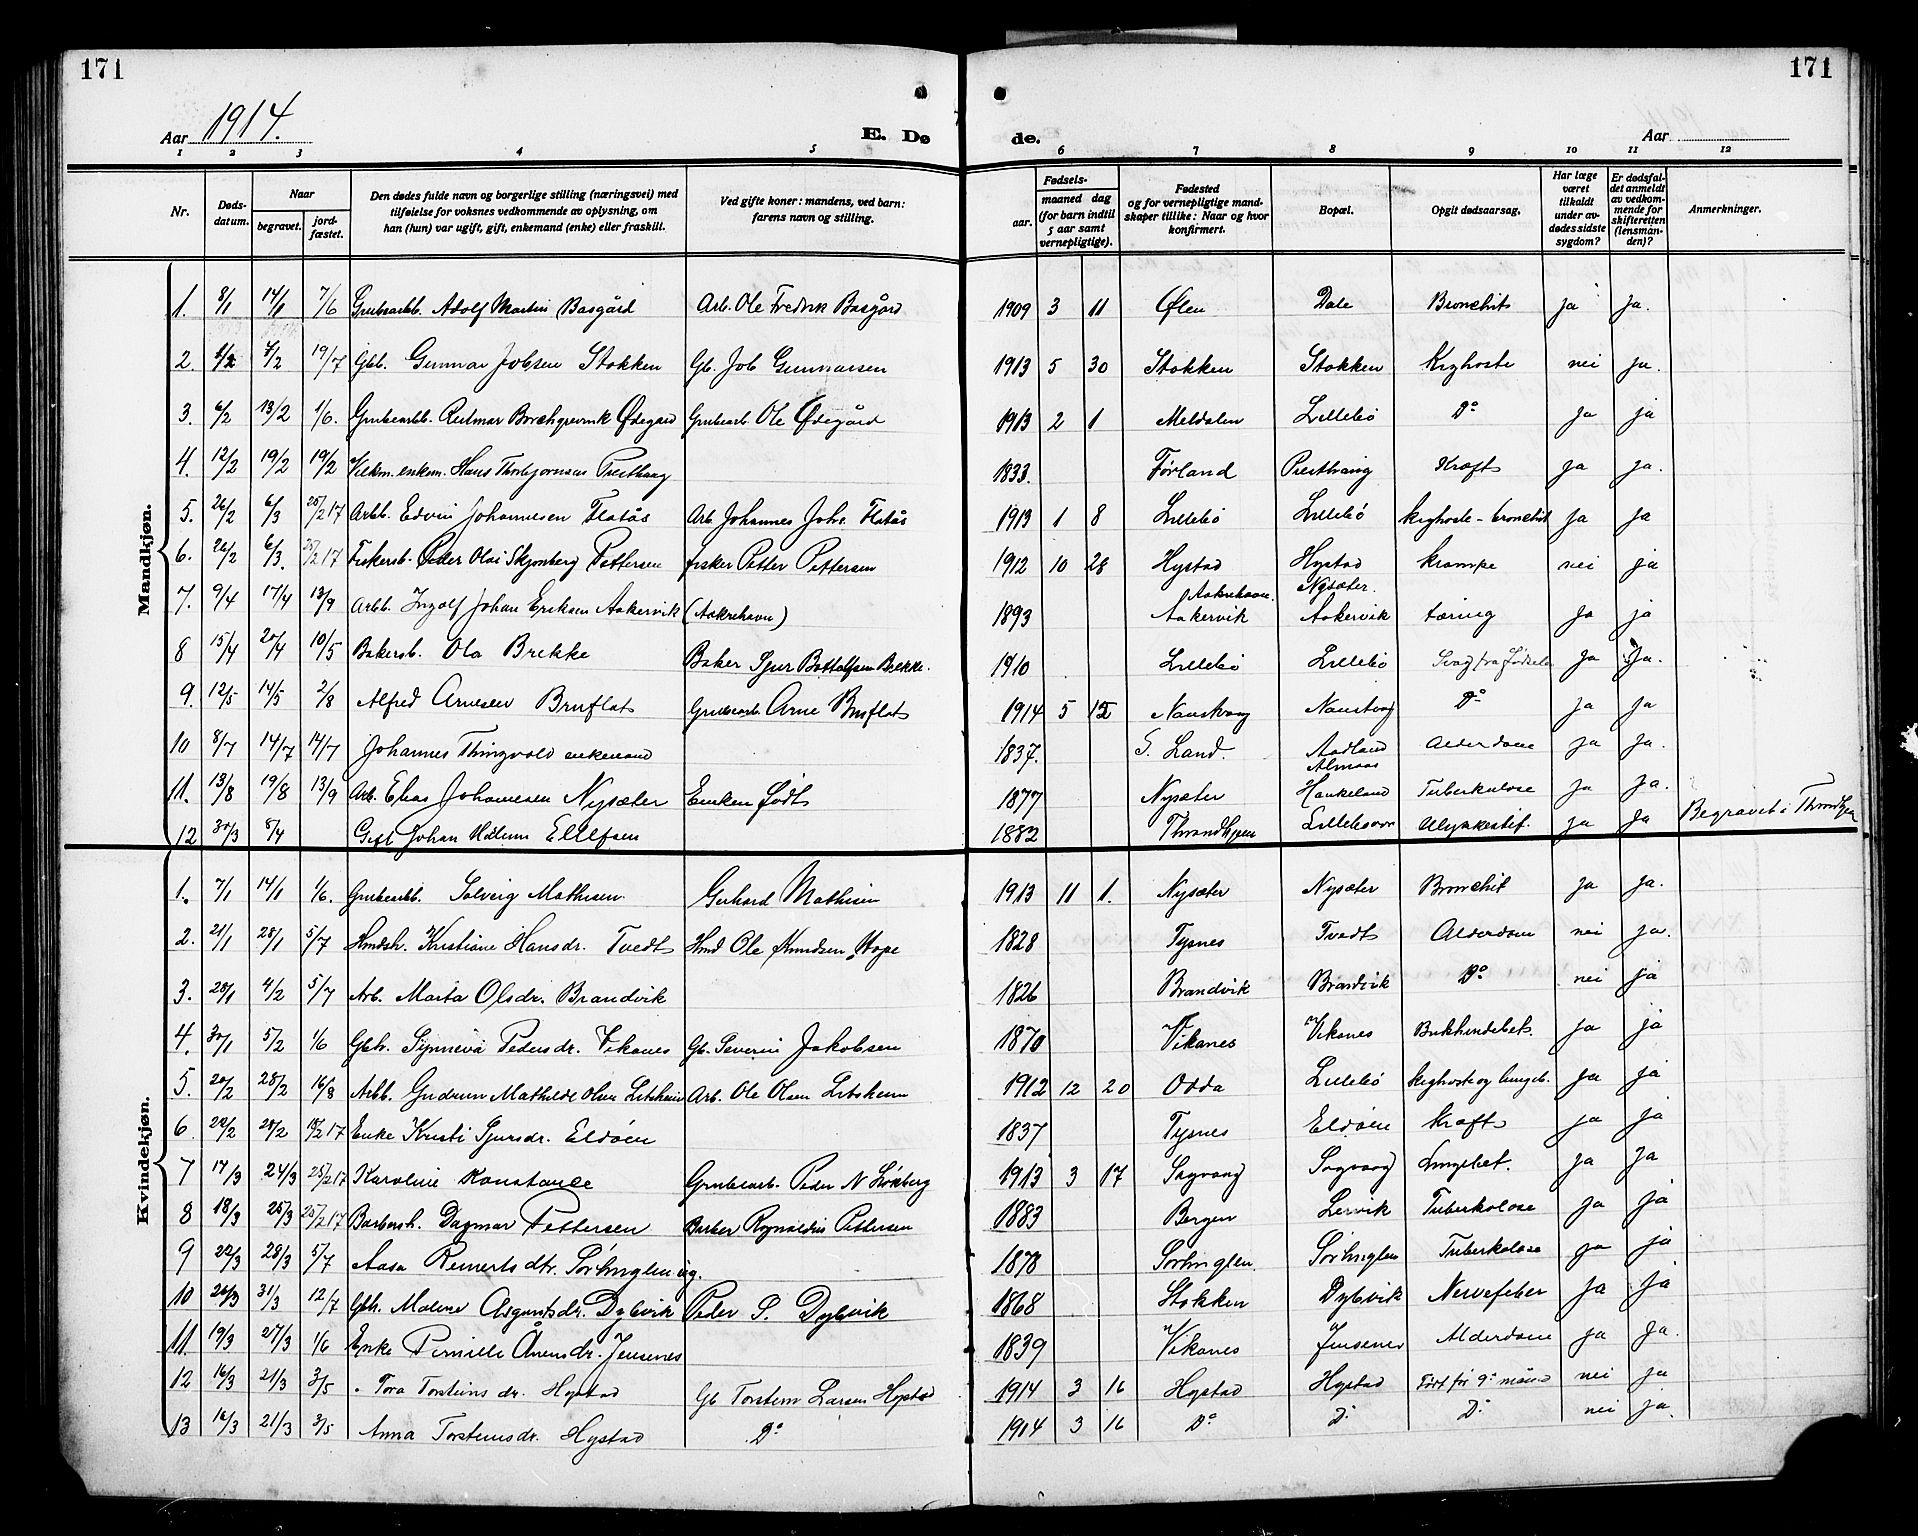 171
171
Aar 1914.
E. Dø
de.
Aar
1 2 3 4 5 6 7 8 9 10 11 12
Nr.
Døds-
datum.
Naar
begravet.
jord-
fæstet.
Den dødes fulde navn og borgerlige stilling (næringsvei) med
tilføielse for voksnes vedkommende av oplysning, om
han (hun) var ugift, gift, enkemand (enke) eller fraskilt.
Ved gifte koner: mandens, ved barn:
farens navn og stilling.
Fødsels-
aar.
maaned dag
(for barn indtil
5 aar samt
vernepligtige).
Fødested
og for vernepligtige mand-
skaper tillike: Naar og hvor
konfirmert.
Bopæl.
Opgit dødsaarsag.
Har læge
været
tilkaldt
under av-
dødes sidste
sygdom?
Er dødsfal-
det anmeldt
av vedkom-
mende for
skifteretten
(lensman-
den)?
Anmerkninger.
Mandkjøn.
1. 8/1 14/1 7/6 Grubearb. Adolf Martin Basgård Arb. Ole Fredrik Basgård 1909 3 11 Ølen Dale Bronchit ja ja.
2. 4/2 19/7 Gbb. Gunnar Jobsen Stokken Gb. Job Gunnarsen 1913 5 30 Stokken Stokken Kighoste nei ja.
3. 6/2 13/2 1/6. Grubearbb. Ødegård Grubearb. Ole Ødegård 1913 2 1 Meldalen Lillebø Do ja ja
4. 12/2 19/2 19/2 enkem. Hans Thorbjørnsen Presthaug 1833. Førland Presthaug Kræft ja ja.
5. 26/2 6/3 25/2 17 Arbb. Edvin Johannesen Flatås Arb. Johannes Johs. Flatås 1913 1 8 Lillebø Lillebø kighoste-bronchit ja ja
6. 26/2 6/3. 25/2 17 Fiskersb. Peder Olai Skjønberg Pettersen fisker Petter Pettersen 1912 10 28 Hystad Hystad krampe nei ja
7. 9/4 17/4 13/9 Arbb. Ingolf Johan Eriksen Aakervik (Aakrehavn) 1893 Aakrehavn. Aakervik Nysæter. Aakervik tæring ja ja
8 15/4 20/4 10/5 Bakersb. Ola Brekke Baker Sjur Bottolfsen Brekke. 1910 Lillebø Lillebø Svag fra Fødselen ja ja.
9. 12/5 14/5 2/8 Alfred Arnesen Bruflat Grubearb. Arne Bruflat 1914 5 12 Naustvaag Naustvaag Do ja ja
10 8/7 14/7 14/7 Johannes Thingvold enkemand 1837. S. Land. Aadland Alderdom ja ja.
11. 13/8 19/8 13/9 Arb. Elias Johannesen Nysæter Enken født 1877 Nysæter Almaas Haukeland Tuberkulose ja ja.
12 30/3 8/4 Gift Johan Ellefsen 1882 Throndhjem Ulykkestilf. ja ja Begravet i Throndhjem
Kvindekjøn.
1. 7/1 14/1 1/6. Grubearbb. Solveig Mathisen Gerhard Mathisen 1913 11 1. Nysæter Nysæter Bronchit ja ja.
2. 21/1 28/1 5/7 Hmdsh. Kristiane Hansdr. Tvedt Hmd Ole Knudsen Hope 1828 Tysnes Tvedt Alderdom nei ja.
3. 28/1 4/2 5/7 Arb. Marta Olsdr. Brandvik 1826 Brandvik Brandvik Do nei ja
4. 30/1 5/2 1/6 Gbh. Synneva Pedersdr. Vikanes Gb. Severin Jakobsen 1870 Vikanes Vikanes Bukhindebet. ja ja
5. 20/2 28/2 16/8 Arbb. Gudrun Mathilde Olsen Litsheim Arb. Ole Olsen Litsheim 1912 12 20 Odda Lillebø kighoste og lungeb. ja ja
6. 22/2 28/2 17 Enke Kristi Sjursdr. Eldøen 1837 Tysnes Eldøen kræft ja ja
7 17/3 24/3 25/2 17 Karoline Konstanse Grubearb. Peder N Løkberg 1913 3 17 Sagvaag Sagvaag Lungebet. ja ja
8 18/3 25/3 25/2 17 Barbersh. Dagmar Pettersen Barber Rognaldin Pettersen 1883 Bergen Lervik Tuberkulose ja ja
9 22/3 28/3 5/7 Aasa Reinertsdtr. Sørhuglen ug. 1878 Sørhuglen. Sørhuglen Tuberkulose ja ja
10 26/3 31/3 12/7 Gbh. Malene Asgautsdr. Dybvik Peder S. Dybvik 1868 Stokken Dybvik Nervefeber ja ja
11. 19/3 27/3 1/6 Enke Pernille Ånensdr. Jensenes 1839 Vikanes Jensenes Alderdom ja ja.
12 16/3 21/3 3/5 Tora Torsteinsdr. Hystad Gb Torstein Larsen Hystad 1914 3 16 Hystad Hystad Født før 9de måned nei ja
13 16/3 21/3 3/5 Anna Torsteinsdr. Hystad Do 1914 3 16 Do Do Do nei ja.